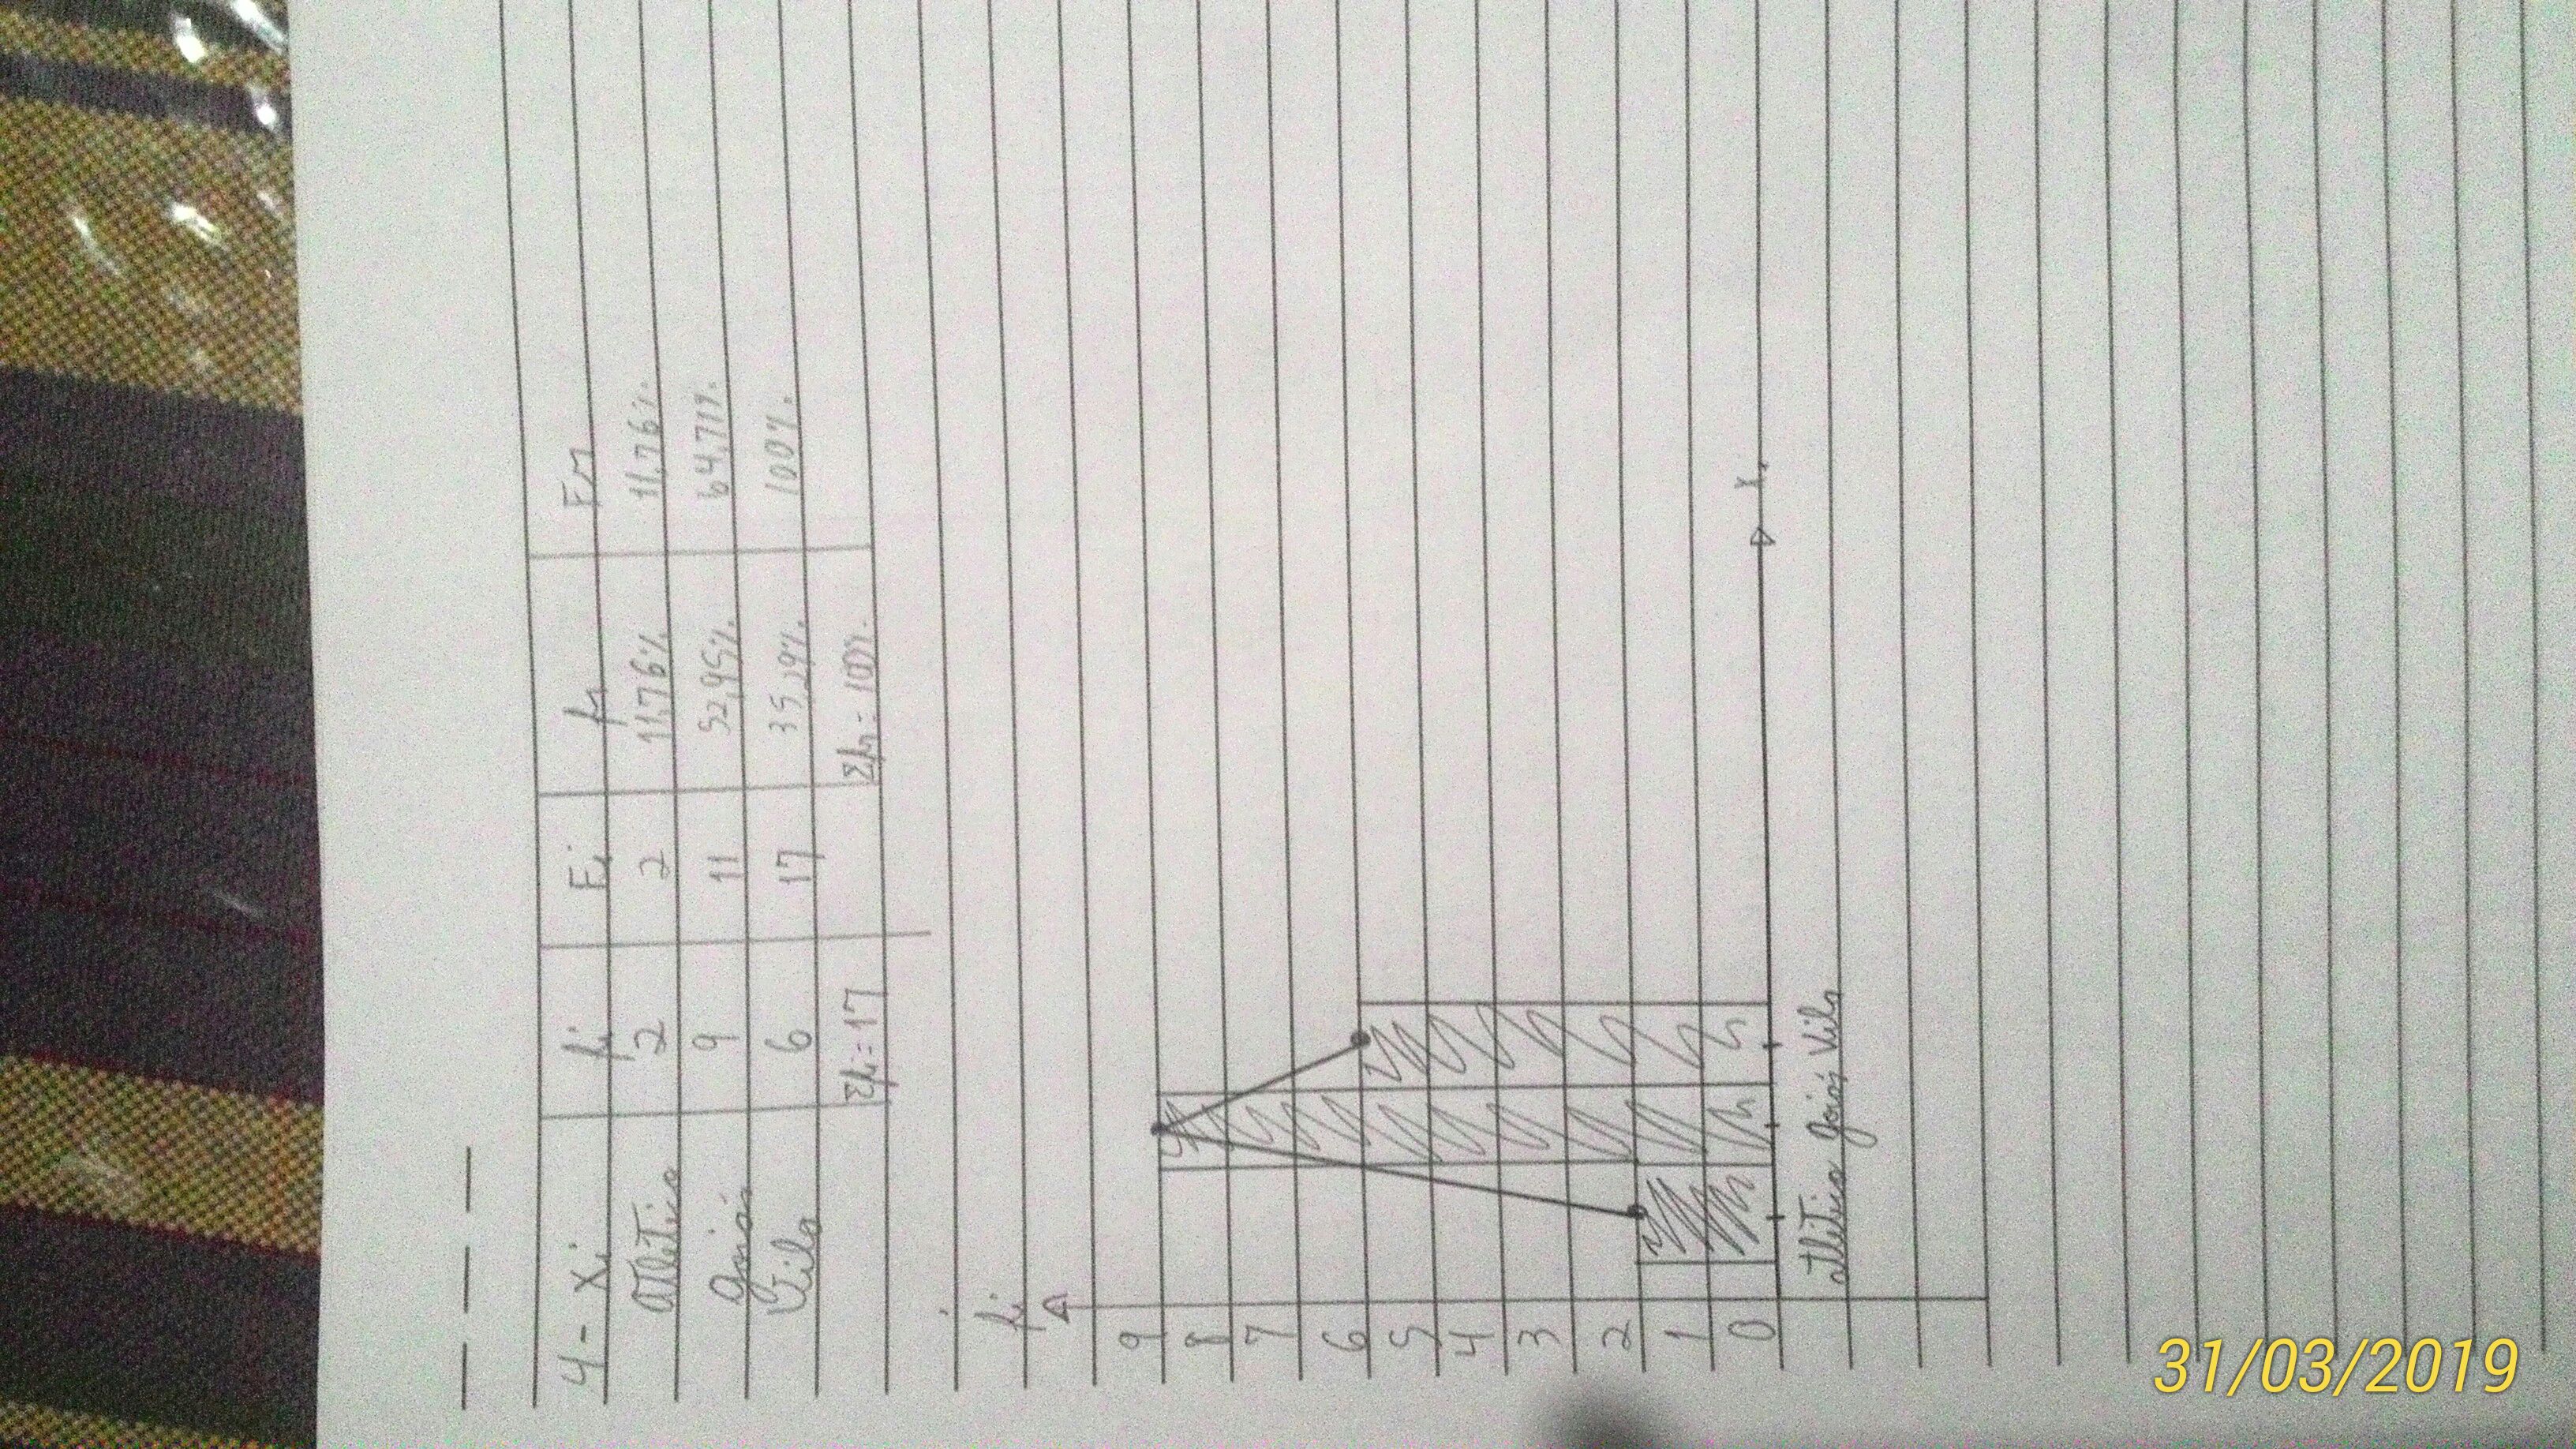 4- Xi fi Fi fr Fr
Atlético 2 2 11,76% 11,76%
Goiás 9 11 52,95% 64,71%
Vila 6 17 35,29% 100%
Σfi=17 Σfr=100%
fi
9
8
7
6
5
4
3
2
1
0 Xi
Atlético Goiás Vila
31/03/2019